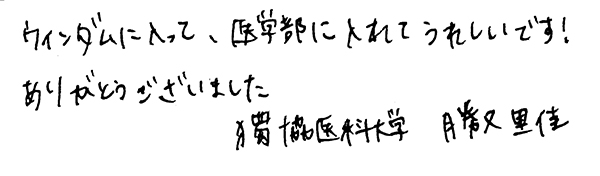 ウィンダムに入って、医学部に入れてうれしいです!
ありがとうございました
獨協医科大学 勝又里佳